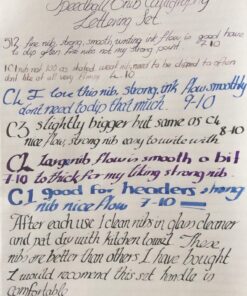 Speedball 6 nib Calligraphy
Lettering Set
512 fine nib, strong, smooth writing, ink flow is good have
to dip often fine nibs not my strong point 7-10
nib not 100 as stated weak nib, need to be dipped to often
dont like at all very thin 4-10
C4 I love this nib, strong, ink flow smoothly
dont need to dip that much 9-10
C3 slightly bigger but same as C4
nice flow, strong nib easy to write with 8-10
C2 large nib flow is smooth a bit
to thick for my liking strong nib 7-10
C1 good for headers strong
nib nice flow 7-10
After each use I clean nibs in glass cleaner
and pat dry with kitchen towel. These
nibs are better than others I have bought
I would recomend this set handle is
comfortable